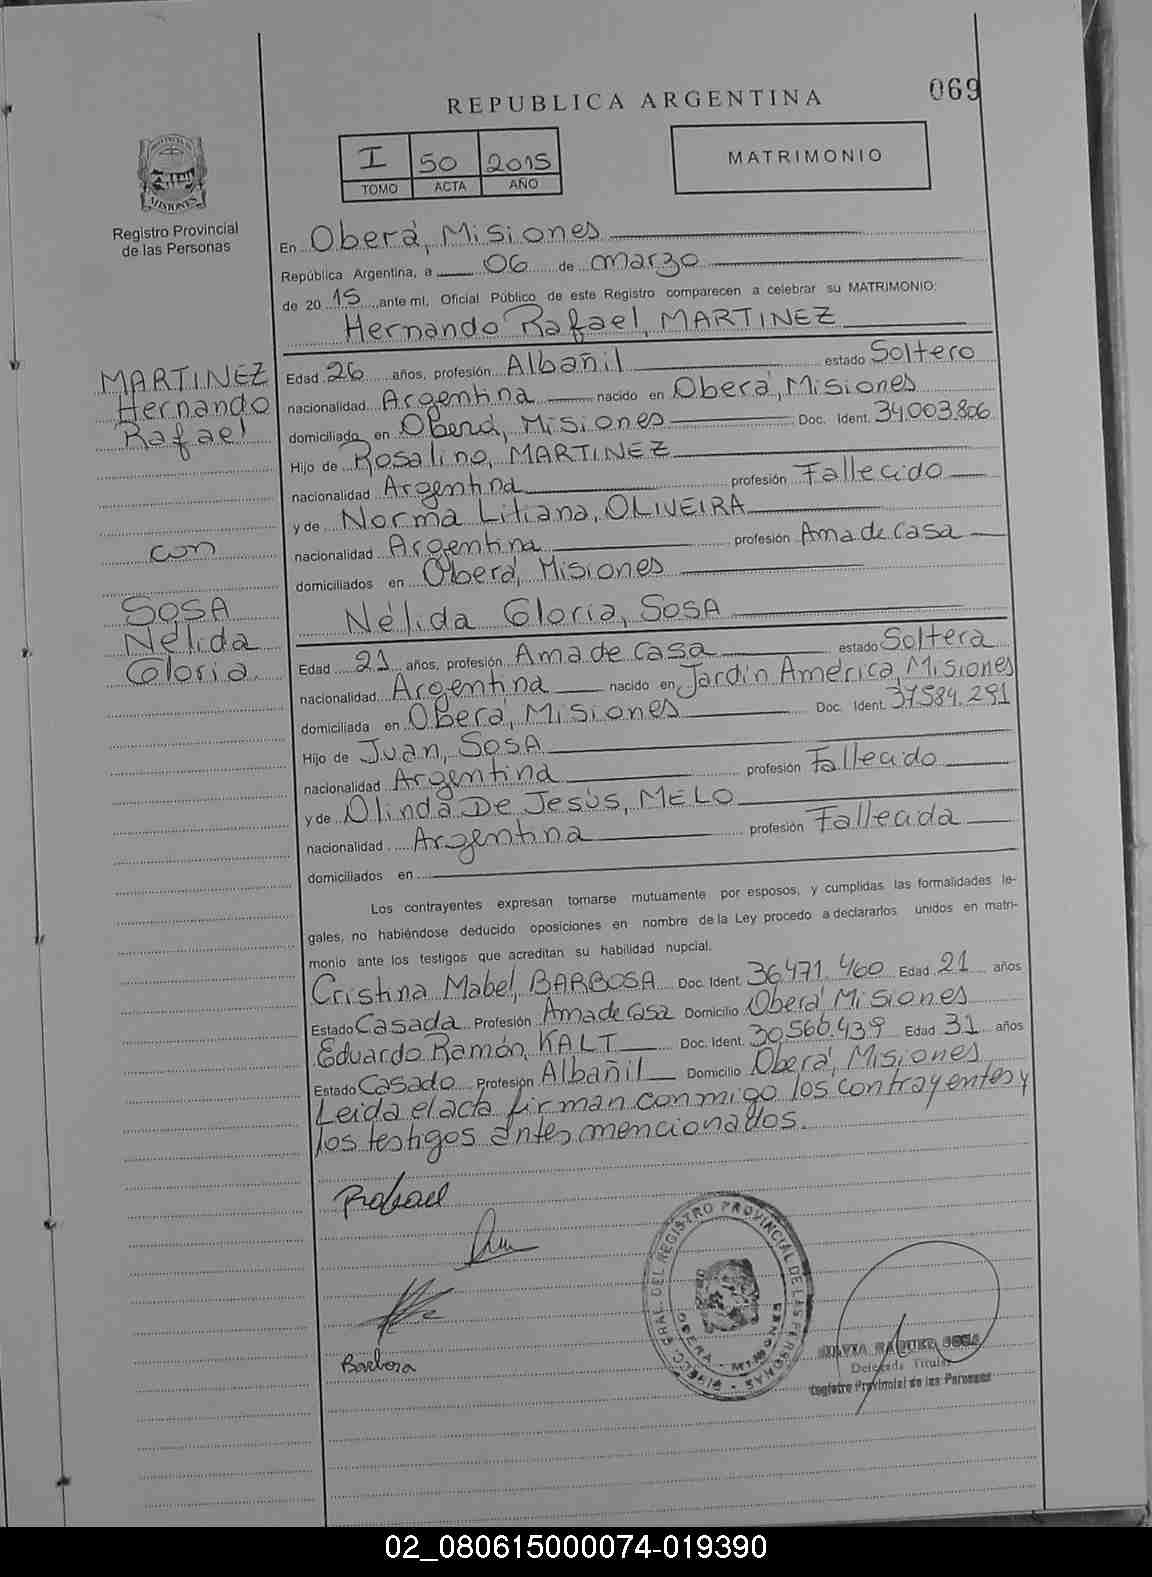 069
REPUBLICA ARGENTINA
I 50 2015
TOMO ACTA AÑO
MATRIMONIO
PROVINCIA DE MISIONES
Registro Provincial
de las Personas
En Oberá, Misiones
República Argentina, a 06 de marzo
de 2015, ante mí, Oficial Público de este Registro comparecen a celebrar su MATRIMONIO:
Hernando Rafael, MARTINEZ
MARTINEZ
Hernando
Rafael
con
SOSA
Nélida
Gloria.
Edad 26 años, profesión Albañil estado Soltero
nacionalidad Argentina nacido en Oberá, Misiones
domiciliado en Oberá, Misiones Doc. Ident. 34.003.806
Hijo de Rosalino, MARTINEZ
nacionalidad Argentina profesión Fallecido
y de Norma Liliana, OLIVEIRA
nacionalidad Argentina profesión Ama de Casa
domiciliados en Oberá, Misiones
Nélida Gloria, SOSA
Edad 21 años, profesión Ama de Casa estado Soltera
nacionalidad Argentina nacido en Jardín América, Misiones
domiciliada en Oberá, Misiones Doc. Ident. 37.584.291
Hijo de Juan, SOSA
nacionalidad Argentina profesión Fallecido
y de Olinda De Jesús, MELO
nacionalidad Argentina profesión Fallecida
domiciliados en
Los contrayentes expresan tomarse mutuamente por esposos, y cumplidas las formalidades le-
gales, no habiéndose deducido oposiciones en nombre de la Ley procedo a declararlos unidos en matri-
monio ante los testigos que acreditan su habilidad nupcial.
Cristina Mabel, BARBOSA Doc. Ident. 36.471.460 Edad 21 años
Estado Casada Profesión Ama de Casa Domicilio Oberá Misiones
Eduardo Ramón, KALT Doc. Ident. 30.566.439 Edad 31 años
Estado Casado Profesión Albañil Domicilio Oberá, Misiones
Leida el acta firman conmigo los contrayentes y
los testigos antes mencionados.
Rafael
Barbosa
DIRECC. GRAL. DEL REGISTRO PROVINCIAL DE LAS PERSONAS
OBERA - MISIONES
SILVIA RAQUEL SOSA
Delegada Titular
Registro Provincial de las Personas
02_080615000074-019390